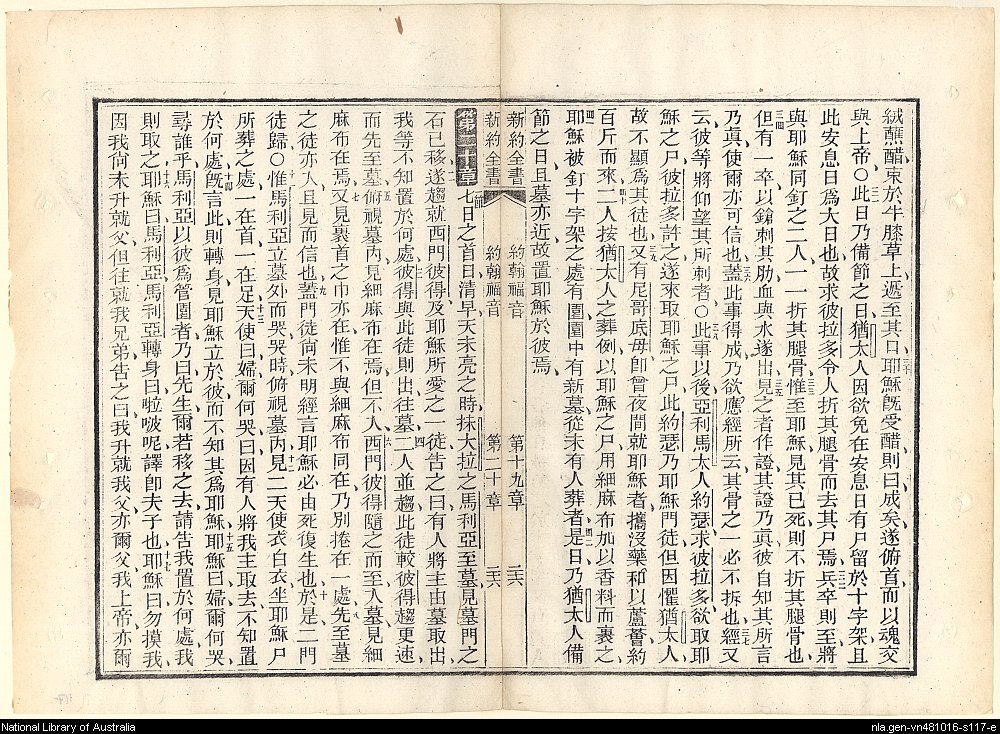 絨蘸醋束於牛膝草上遞至其口耶穌旣受醋則曰成矣遂俯首而以魂交
與上帝○此日乃備節之日猶太人因欲免在安息日有尸留於十字架且
此安息日爲大日也故求彼拉多令人折其腿骨而去其尸焉兵卒則至將
與耶穌同釘之二人一一折其腿骨惟至耶穌見其已死則不折其腿骨也
但有一卒以鎗刺其肋血與水遂出見之者作證其證乃眞彼自知其所言
乃眞使爾亦可信也蓋此事得成乃欲應經所云其骨之一必不折也經又
云彼等將仰望其所刺者○此事以後亞利馬太人約瑟求彼拉多欲取耶
穌之尸彼拉多許之遂來取耶穌之尸此約瑟乃耶穌門徒但因懼猶太人
故不顯爲其徒也又有尼哥底母卽曾夜間就耶穌者攜沒藥和以蘆薈約
百斤而來二人按猶太人之葬例以耶穌之尸用細麻布加以香料而裹之
耶穌被釘十字架之處有園園中有新墓從未有人葬者是日乃猶太人備
節之日且墓亦近故置耶穌於彼焉
新約全書 約翰福音 第十九章 二六
新約全書 約翰福音 第二十章 二六
第二十章 七日之首日清早天未亮之時抹大拉之馬利亞至墓見墓門之
石已移遂趨就西門彼得及耶穌所愛之一徒告之曰有人將主由墓取出
我等不知置於何處彼得與此徒則出往墓二人並趨此徒較彼得趨更速
而先至墓俯視墓內見細麻布在焉但不入西門彼得隨之而至入墓見細
麻布在焉又見裹首之巾亦在惟不與細麻布同在乃別捲在一處先至墓
之徒亦入且見而信也蓋門徒尙未明經言耶穌必由死復生也於是二門
徒歸○惟馬利亞立墓外而哭哭時俯視墓內見二天使衣白衣坐耶穌尸
所葬之處一在首一在足天使曰婦爾何哭曰因有人將我主取去不知置
於何處旣言此則轉身見耶穌立於彼而不知其爲耶穌耶穌曰婦爾何哭
尋誰乎馬利亞以彼爲管園者乃曰先生爾若移之去請告我置於何處我
則取之耶穌曰馬利亞馬利亞轉身曰啦啵呢譯卽夫子也耶穌曰勿摸我
因我尙未升就父但往就我兄弟告之曰我升就我父亦爾父我上帝亦爾
National Library of Australia
nla.gen-vn481016-s117-e